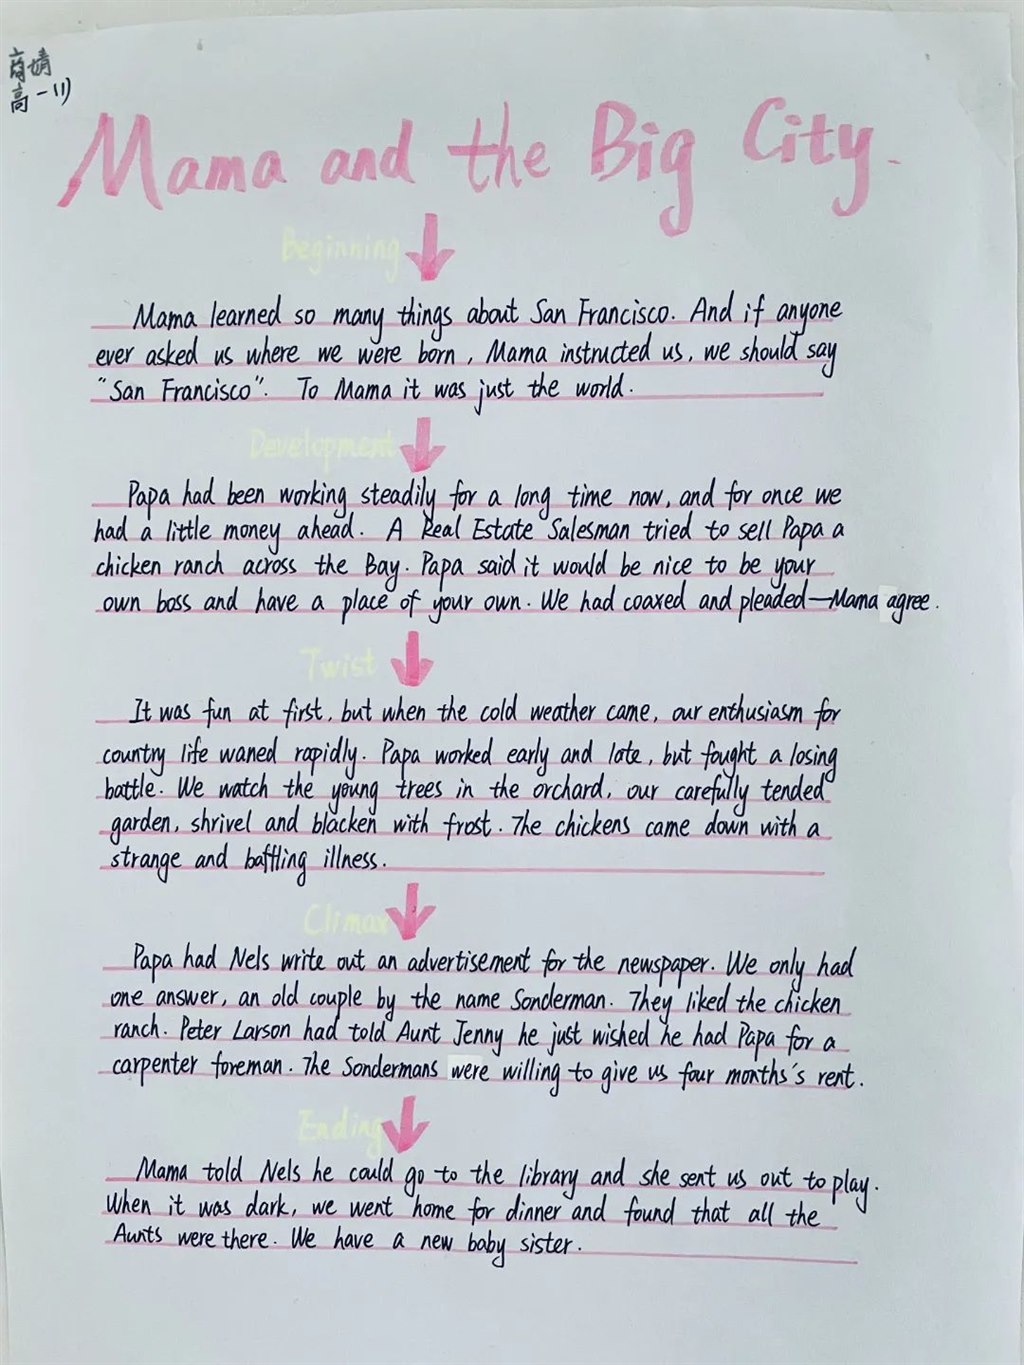 商婧
高一(1)
Mama and the Big City.
Beginning
Mama learned so many things about San Francisco. And if anyone
ever asked us where we were born, Mama instructed us, we should say
"San Francisco". To Mama it was just the world.
Development
Papa had been working steadily for a long time now, and for once we
had a little money ahead. A Real Estate Salesman tried to sell Papa a
chicken ranch across the Bay. Papa said it would be nice to be your
own boss and have a place of your own. We had coaxed and pleaded—Mama agree.
Twist
It was fun at first, but when the cold weather came, our enthusiasm for
country life waned rapidly. Papa worked early and late, but fought a losing
battle. We watch the young trees in the orchard, our carefully tended
garden, shrivel and blacken with frost. The chickens came down with a
strange and baffling illness.
Climax
Papa had Nels write out an advertisement for the newspaper. We only had
one answer, an old couple by the name Sonderman. They liked the chicken
ranch. Peter Larson had told Aunt Jenny he just wished he had Papa for a
carpenter foreman. The Sondermans were willing to give us four months's rent.
Ending
Mama told Nels he could go to the library and she sent us out to play.
When it was dark, we went home for dinner and found that all the
Aunts were there. We have a new baby sister.